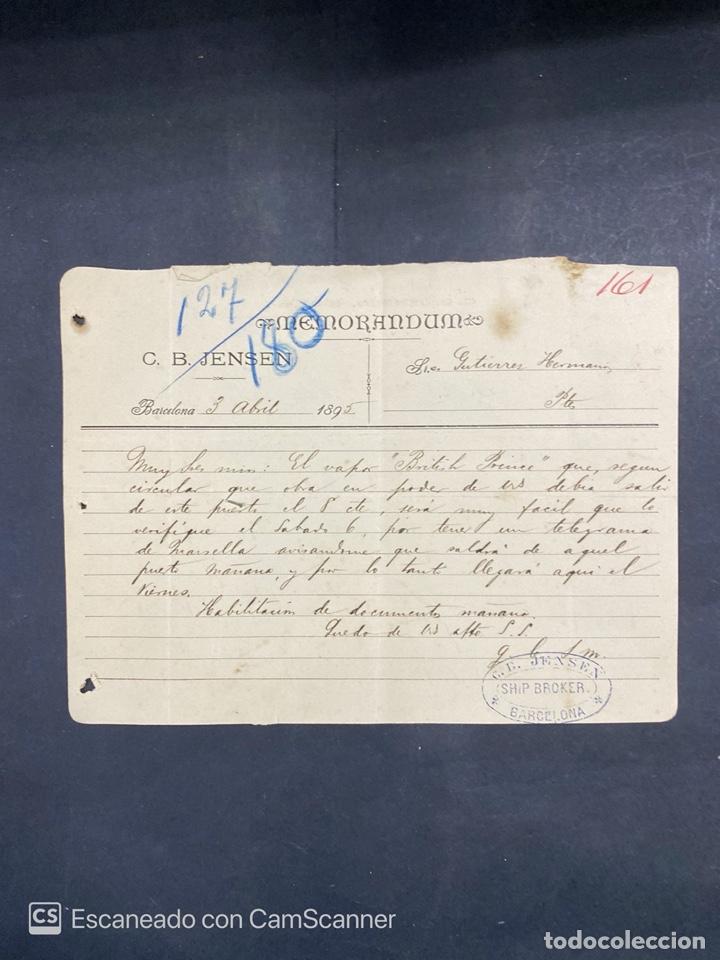 127
180
161
MEMORANDUM
C. B. JENSEN
Sres Gutierrez Hermanos
Barcelona 3 Abril 1895
Pte
Muy Sres mios: El vapor "British Prince" que, segun
circular que obra en poder de Vds debia salir
de este puerto el 8 cte, será muy facil que lo
verifique el Sabado 6, por tener un telegrama
de Marsella avisandome que saldrá de aquel
puerto mañana, y por lo tanto llegará aqui el
Viernes.
Habilitacion de documentos mañana.
Quedo de Vds afto S. S.
q b s m.
C. B. JENSEN
SHIP BROKER.
BARCELONA
CS Escaneado con CamScanner
todocoleccion